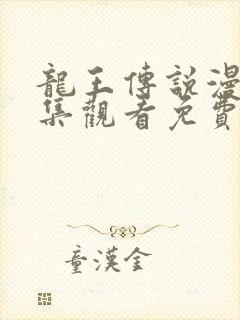 龍王傳說漫
集觀看免費
童漢金